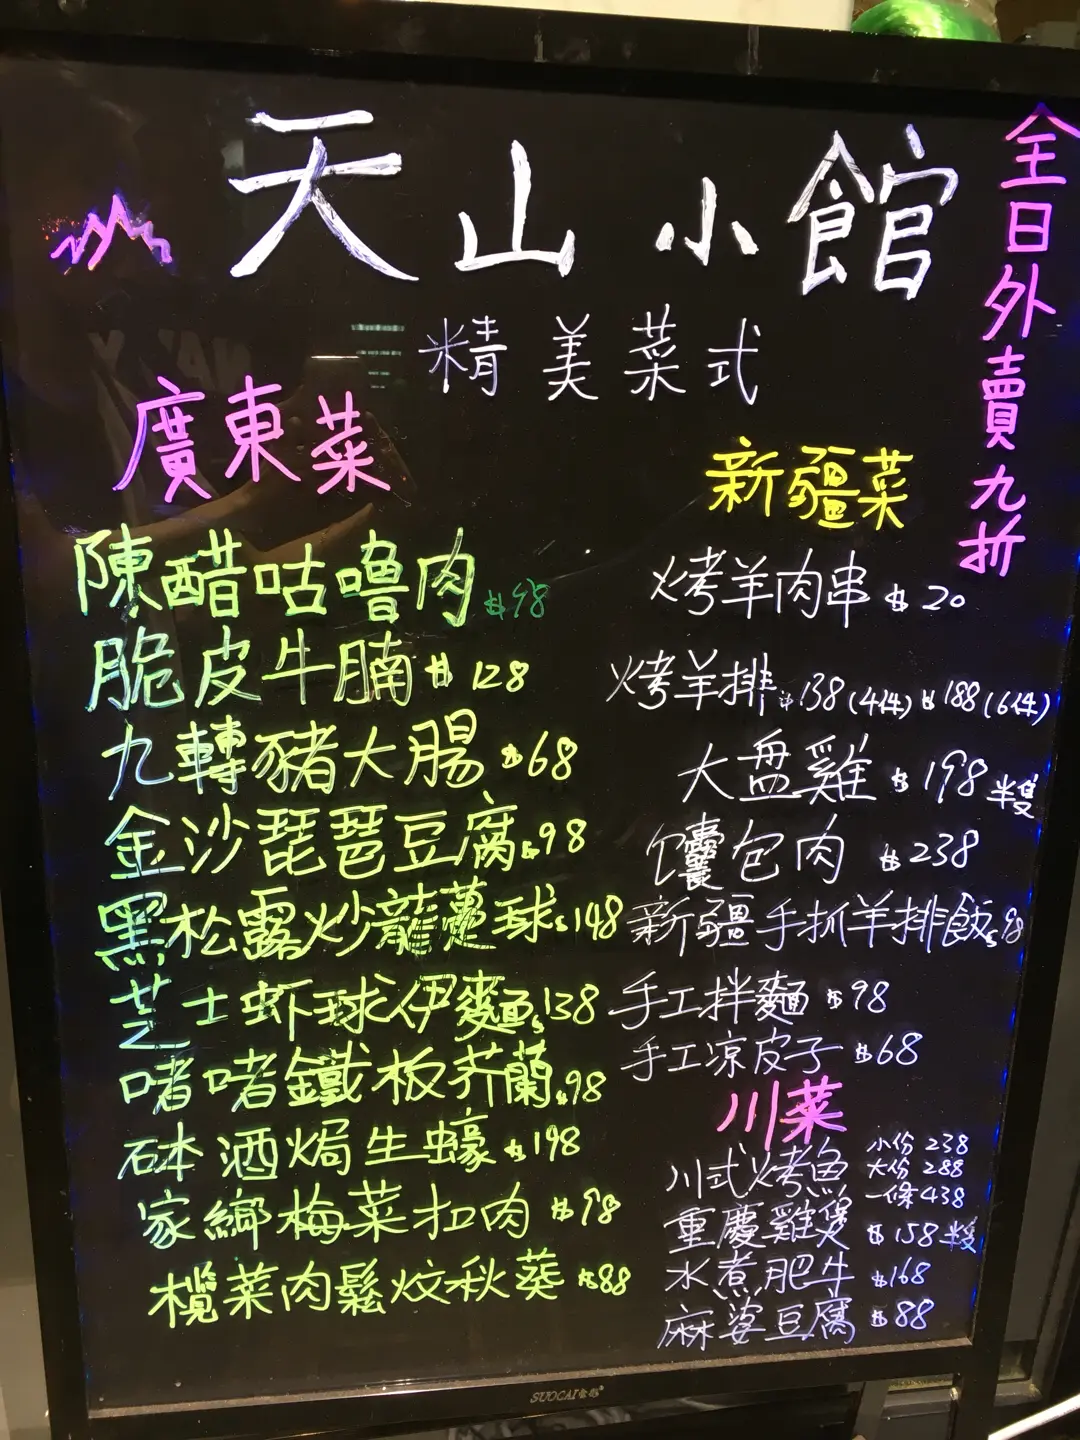 天山小館
精美菜式
全日外賣九折
廣東菜
陳醋咕嚕肉 $98
脆皮牛腩 $128
九轉豬大腸 $68
金沙琵琶豆腐 $98
黑松露炒龍躉球 $148
芝士蝦球伊麵 $138
啫啫鐵板芥蘭 $98
砵酒焗生蠔 $198
家鄉梅菜扣肉 $98
欖菜肉鬆炆秋葵 $88
新疆菜
烤羊肉串 $20
烤羊排 $138(4件) $188(6件)
大盤雞 $198 半隻
饢包肉 $238
新疆手抓羊排飯 $98
手工拌麵 $98
手工凉皮子 $68
川菜
川式烤魚 小份 238
大份 288
一條 438
重慶雞煲 $158 半隻
水煮肥牛 $168
麻婆豆腐 $88
SUOCAI